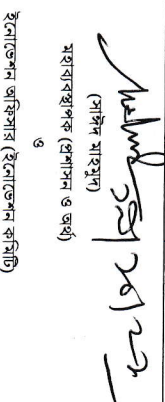 (সাঈদ মাহমুদ)
মহাব্যবস্থাপক (প্রশাসন ও অর্থ)
ও
ইনোভেশন অফিসার (ইনোভেশন কমিটি)